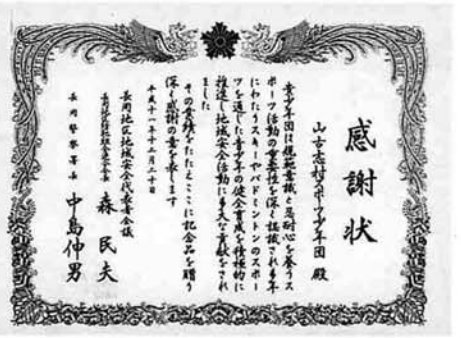 感謝状
山古志村スポーツ少年団 殿
貴少年団は規範意識と忍耐心を養うス
ポーツ活動の重要性を深く認識され多年
にわたりスキーやバドミントンのスポー
ツを通じた青少年の健全育成を積極的に
推進し地域安全活動に多大な貢献をされ
ました
その業績をたたえここに記念品を贈り
深く感謝の意を表します
平成十一年十二月二十日
長岡地区地域安全代表者会議
森 民夫
長岡警察署長 中島伸男